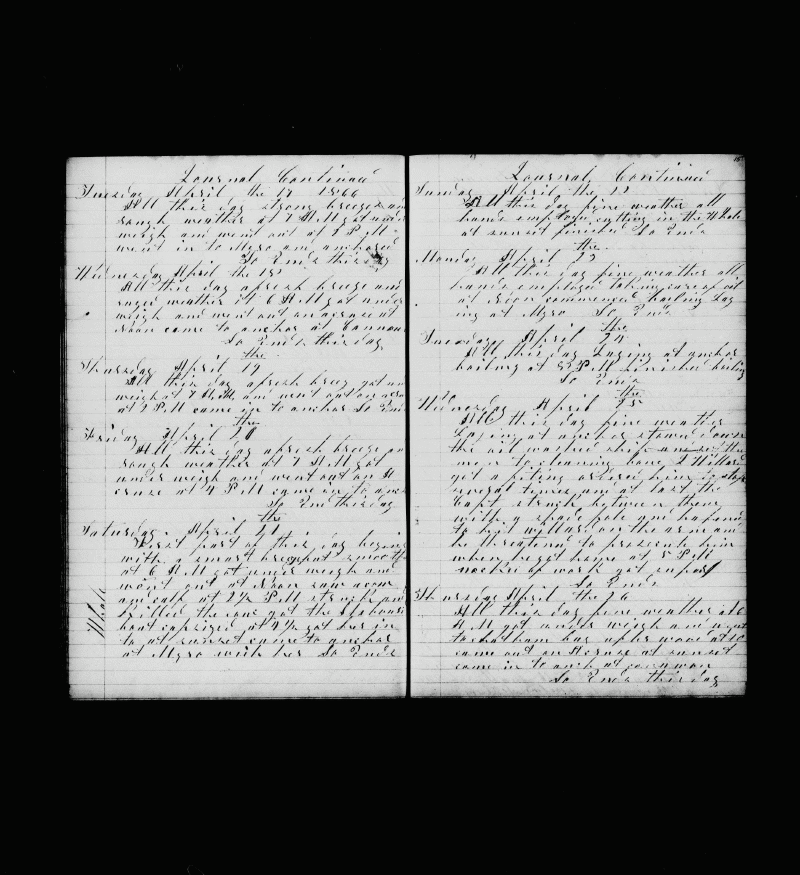 Journal Continued
Tuesday April the 17 1866
All this day strong breeze and
rough weather at 7 A M got under
weigh and went out at 2 P M
went in to Myro and anchored
So Ends this day
Wednesday April the 18
All this day a fresh breeze and
ruged weather at 6 A M got under
weigh and went out on a cruse at
Noon came to anchor at Cannouan
So Ends this day
the
Thursday April 19
All this day a fresh breez got under
weigh at 7 A M and went out on a cruse
at 2 P M came in to anchor So Ends
the
Friday April 20
All this day a fresh breeze and
rough weather at 7 A M got
under weigh and went out on A
cruse at 4 P M came in to anchor
So Ends this day
the
Saturday April 21
First part of this day begins
with a smart breeze but smooth
at 6 A M got under weigh and
went out at Noon saw a cow
and calf at 2½ P M struck and
Whale
killed the cow got the
boat capsized at 4½ got her in
to at sunset came to anchor
at Myro with her So Ends
Journal Continued
Sunday April the 22
All this day fine weather all
hands employed cutting in the Whale
at sunset finished So Ends
the
Monday April 23
All this day fine weather all
hands employed taking care of oil
at Noon commenced boiling Lay
ing at Myro So Ends
the
Tuesday April 24
All this day Laying at anchor
boiling at 5 P M finished boiling
So Ends
the
Wednesday April 25
All this day fine weather
Laying at anchor stowed down
the oil washed ship and set the
men to cleaning bone
got a
times and at last the
Capt struck between them
with a spade pole and
to hit on the arm and
he threatend to prosecute him
when he got home at 5 P M
nocked of work
So Ends
Thursday April the 26
All this day fine weather at 6
A M got under weigh and went
to chatham bay after wood at 10
came out on A cruse at sunset
came in to anch at cannouan
So Ends this day